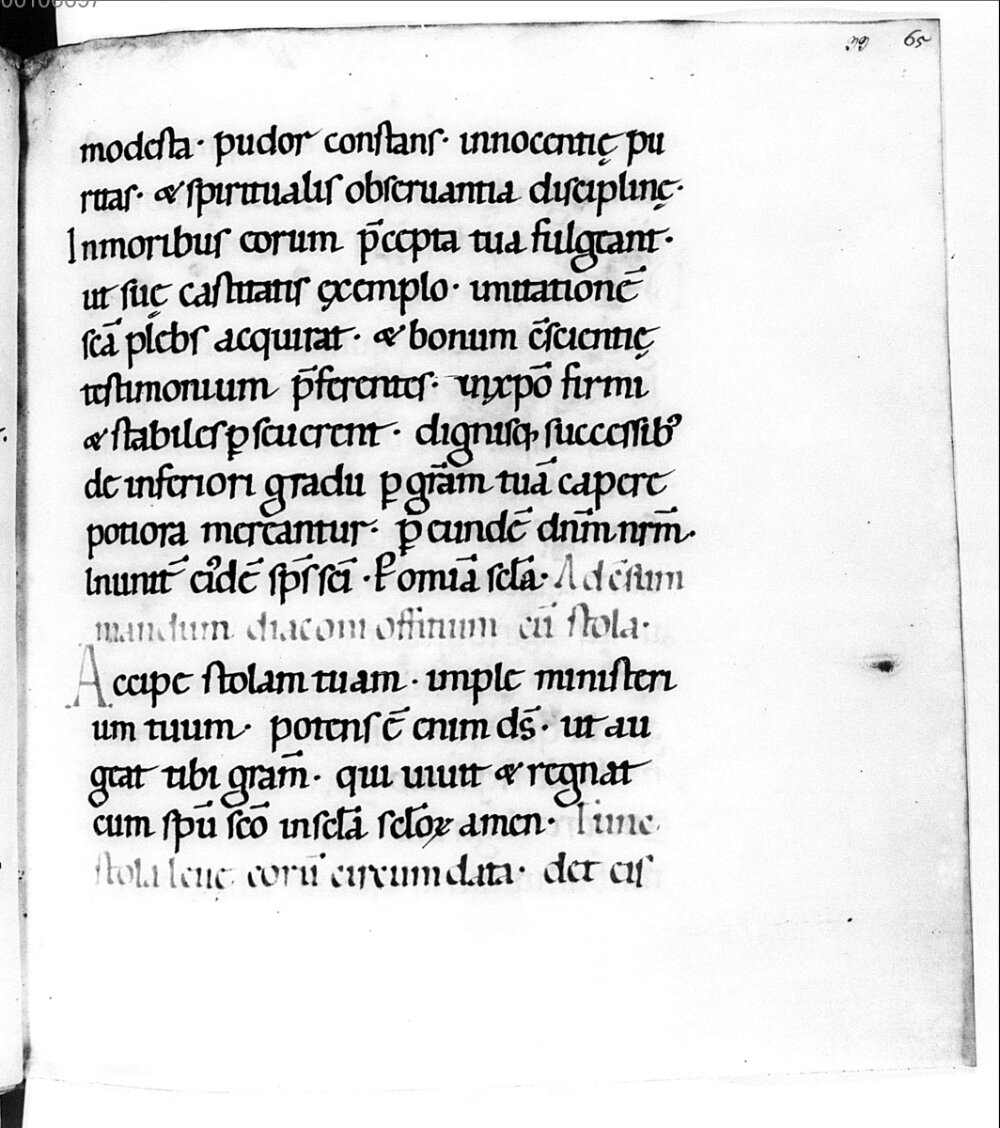 00106697
99 65
modesta· pudor constans· innocentię pu
ritas· & spiritualis obseruantia disciplinę·
Inmoribus eorum p̄cepta tua fulgeant·
ut suę castitatis ęxemplo· imitationē
sc̄ā plebs acquirat· & bonum c̄scientię
testimonium p̄ferentes· inxp̄o firmi
& stabiles ꝑseuerent· dignisq; successibꝰ
de inferiori gradu ꝑ gr̄am tuā capere
potiora mereantur· ꝑ eundē dn̄m nr̄m·
Inunit̄ eiꝰdē sp̄s sc̄i· P omīa sc̄lā· Ad c̄sum
mandum diaconi offitium cū stola·
Accipe stolam tuam· imple ministeri
um tuum· potens ē enim ds̄· ut au
geat tibi gr̄am· qui uiuit & regnat
cum sp̄u sc̄o insc̄lā sc̄loꝝ amen· Tunc
stola leuę eorū circumdata· det eis